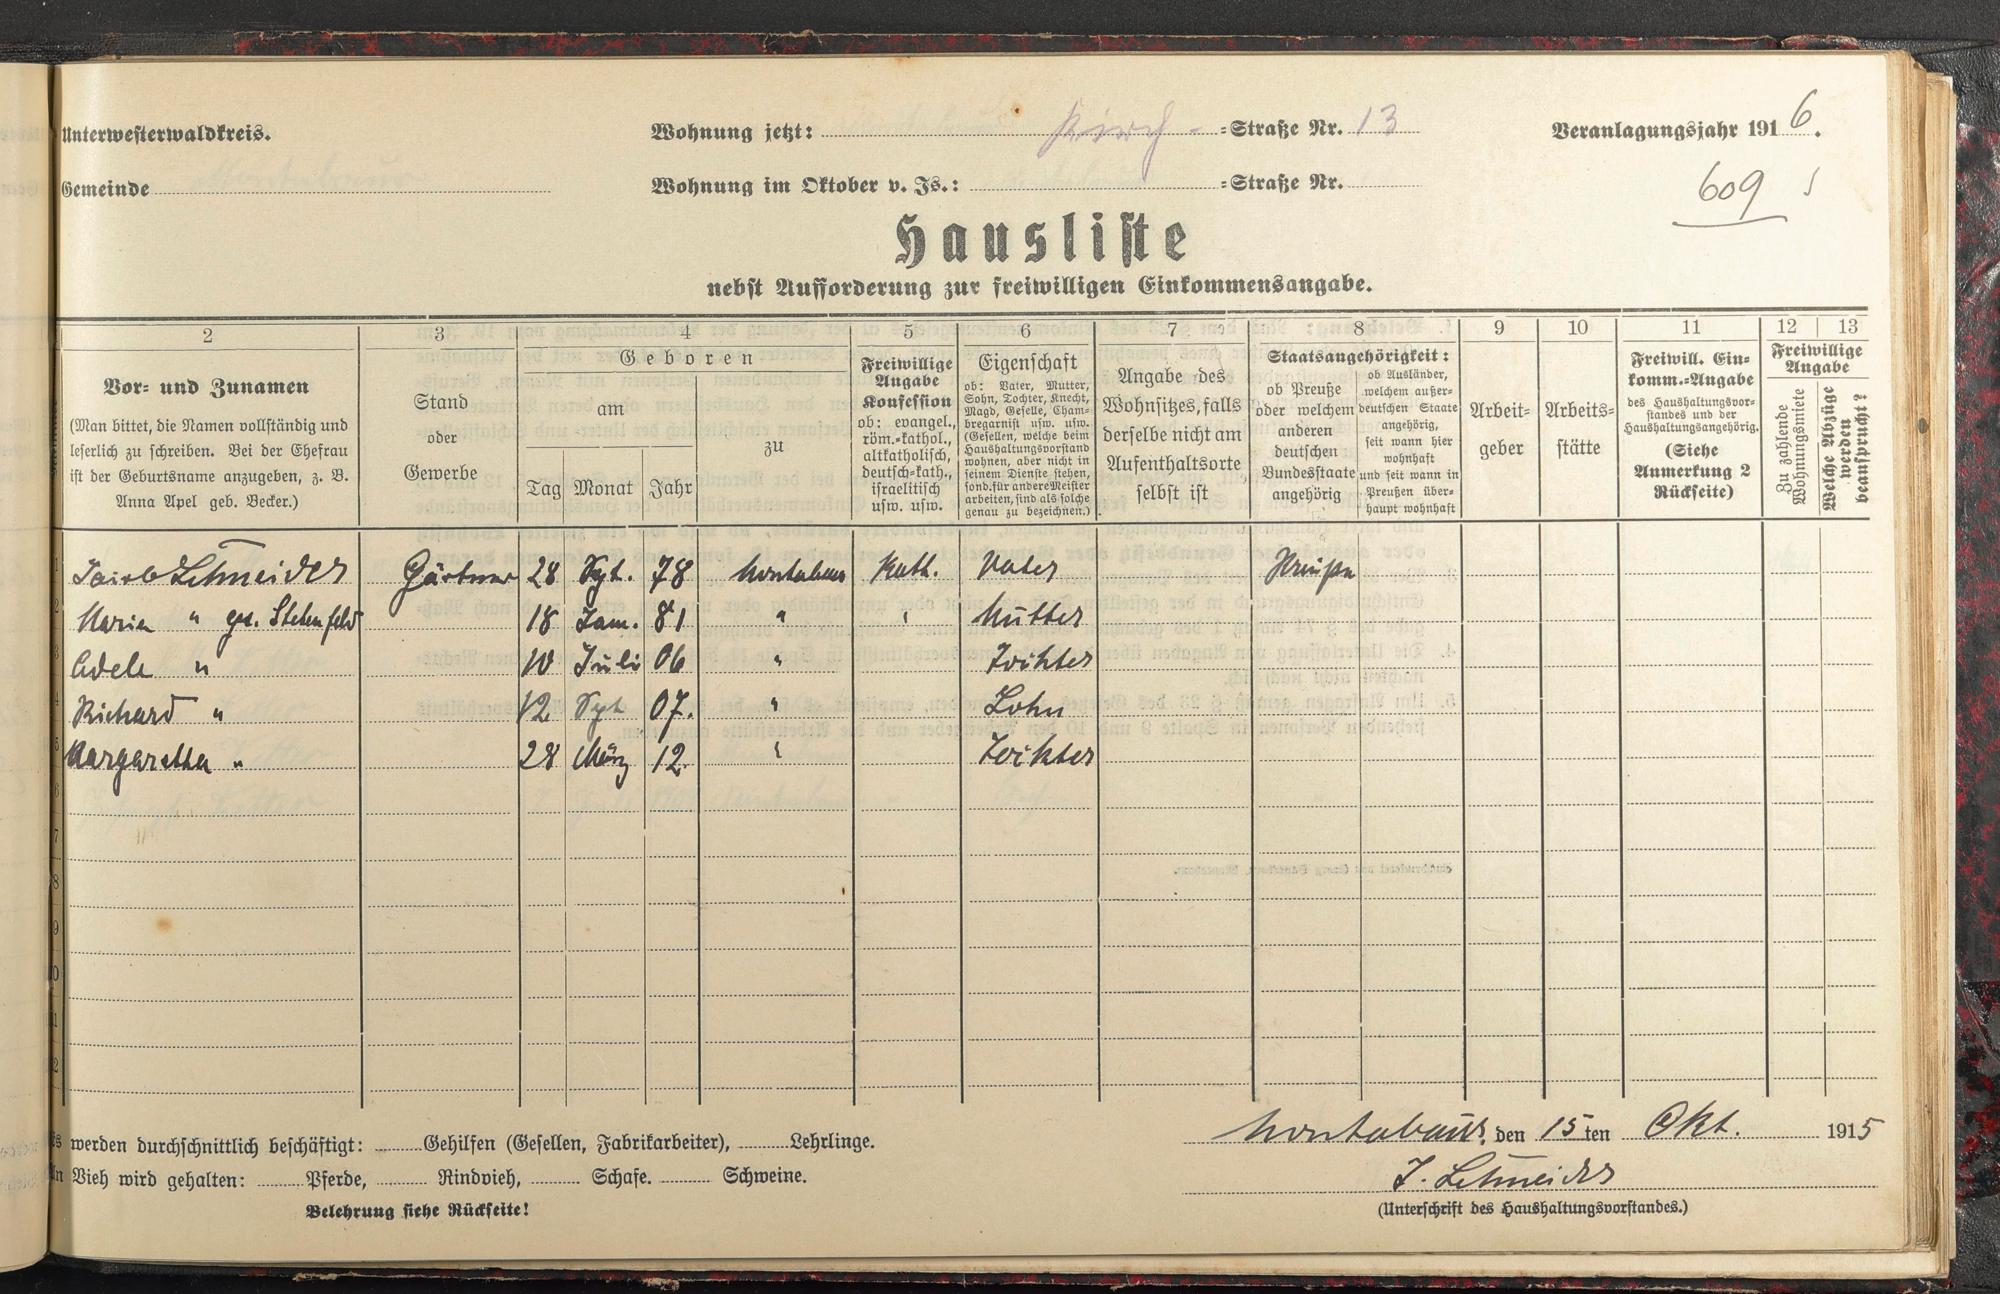 Unterwesterwaldkreis.
Wohnung jetzt: Kirch-=Straße Nr. 13
Veranlagungsjahr 1916.
Gemeinde
Wohnung im Oktober v. Js.: =Straße Nr.
609
Hausliste
nebst Aufforderung zur freiwilligen Einkommensangabe.
2 3 4 5 6 7 8 9 10 11 12 13
Vor- und Zunamen
(Man bittet, die Namen vollständig und
leserlich zu schreiben. Bei der Ehefrau
ist der Geburtsname anzugeben, z. B.
Anna Apel geb. Becker.)
Stand
oder
Gewerbe
Geboren
am
Tag Monat Jahr
zu
Freiwillige
Angabe
Konfession
ob: evangel.,
röm.-kathol.,
altkatholisch,
deutsch-kath.,
israelitisch
usw. usw.
Eigenschaft
ob: Vater, Mutter,
Sohn, Tochter, Knecht,
Magd, Geselle, Cham-
bregarnist usw. usw.
(Gesellen, welche beim
Haushaltungsvorstand
wohnen, aber nicht in
seinem Dienste stehen,
sond. für andere Meister
arbeiten, sind als solche
genau zu bezeichnen.)
Angabe des
Wohnsitzes, falls
derselbe nicht am
Aufenthaltsorte
selbst ist
Staatsangehörigkeit:
ob Preuße
oder welchem
anderen
deutschen
Bundesstaate
angehörig
ob Ausländer,
welchem außer-
deutschen Staate
angehörig,
seit wann hier
wohnhaft
und seit wann in
Preußen über-
haupt wohnhaft
Arbeit-
geber
Arbeits-
stätte
Freiwill. Ein-
komm.-Angabe
des Haushaltungsvor-
standes und der
Haushaltungsangehörig.
(Siehe
Anmerkung 2
Rückseite)
Freiwillige
Angabe
Zu zahlende
Wohnungsmiete
Welche Abzüge
werden
beansprucht?
1 Jacob Schneider Gärtner 28 Spt. 78 Montabaur Kath. Vater Preuße
2 Maria " ge. Stebenfeld 18 Jan. 81 " ' Mutter
3 Adele " 10 Juli 06 " Tochter
4 Richard " 12 Spt 07. " Sohn
5 Margaretha " 28 März 12. " Tochter
6
7
8
9
10
11
12
Es werden durchschnittlich beschäftigt: Gehilfen (Gesellen, Fabrikarbeiter), Lehrlinge.
An Vieh wird gehalten: Pferde, Rindvieh, Schafe. Schweine.
Belehrung siehe Rückseite!
Montabaur, den 15ten Okt. 1915
J. Schneider
(Unterschrift des Haushaltungsvorstandes.)